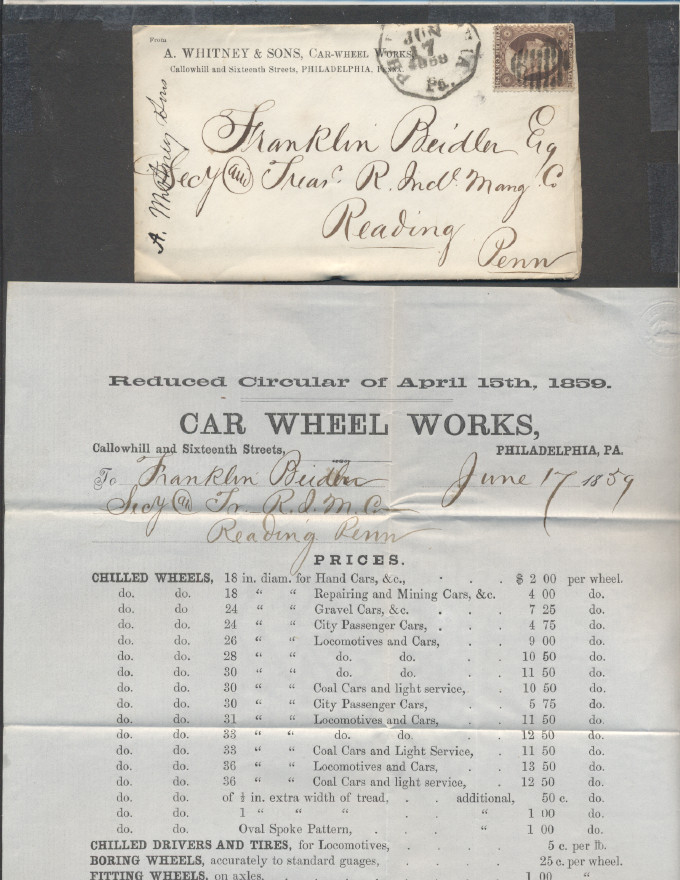 From
A. WHITNEY & SONS, CAR-WHEEL WORKS,
Callowhill and Sixteenth Streets, PHILADELPHIA, PENN.
JUN
17
1859
Pa.
A. Whitney & Sons
Franklin Beidler Esq
Secy and Treas. R. Indl. Mang. Co
Reading
Penn
Reduced Circular of April 15th, 1859.
CAR WHEEL WORKS,
Callowhill and Sixteenth Streets, PHILADELPHIA, PA.
To Franklin Beidler June 17 1859
Secy & Tr. R. I. M. Co
Reading Penn
PRICES.
CHILLED WHEELS, 18 in. diam. for Hand Cars, &c., . . . $ 2 00 per wheel.
do. do. 18 “ “ Repairing and Mining Cars, &c. 4 00 do.
do. do 24 “ “ Gravel Cars, &c. . . . 7 25 do.
do. do. 24 “ “ City Passenger Cars, . . . 4 75 do.
do. do. 26 “ “ Locomotives and Cars, . . 9 00 do.
do. do. 28 “ “ do. do. . . 10 50 do.
do. do. 30 “ “ do. do. . . 11 50 do.
do. do. 30 “ “ Coal Cars and light service, . 10 50 do.
do. do. 30 “ “ City Passenger Cars, . . 5 75 do.
do. do. 31 “ “ Locomotives and Cars, . . 11 50 do.
do. do. 33 “ “ do. do. . . 12 50 do.
do. do. 33 “ “ Coal Cars and Light Service, . 11 50 do.
do. do. 36 “ “ Locomotives and Cars, . . 13 50 do.
do. do. 36 “ “ Coal Cars and light service, . 12 50 do.
do. do. of ½ in. extra width of tread, . . additional, 50 c. do.
do. do. 1 “ “ “ . . “ 1 00 do.
do. do. Oval Spoke Pattern, . . . “ 1 00 do.
CHILLED DRIVERS AND TIRES, for Locomotives, . . . 5 c. per lb.
BORING WHEELS, accurately to standard guages, . . . 25 c. per wheel.
FITTING WHEELS, on axles. . . . 1 00 “